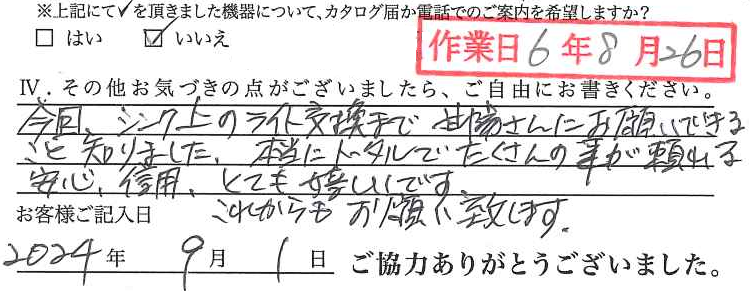 ※上記にて✓を頂きました機器について、カタログ届か電話でのご案内を希望しますか?
□ はい ☑ いいえ
作業日 6 年 8 月 26 日
Ⅳ.その他お気づきの点がございましたら、ご自由にお書きください。
今回、シンク上のライト交換まで さんにお願いできる
こと知りました。本当にトータルでたくさんの事が頼れる
安心、信用、とても嬉しいです。
これからもお願い致します。
お客様ご記入日
2024 年 9 月 1 日 ご協力ありがとうございました。